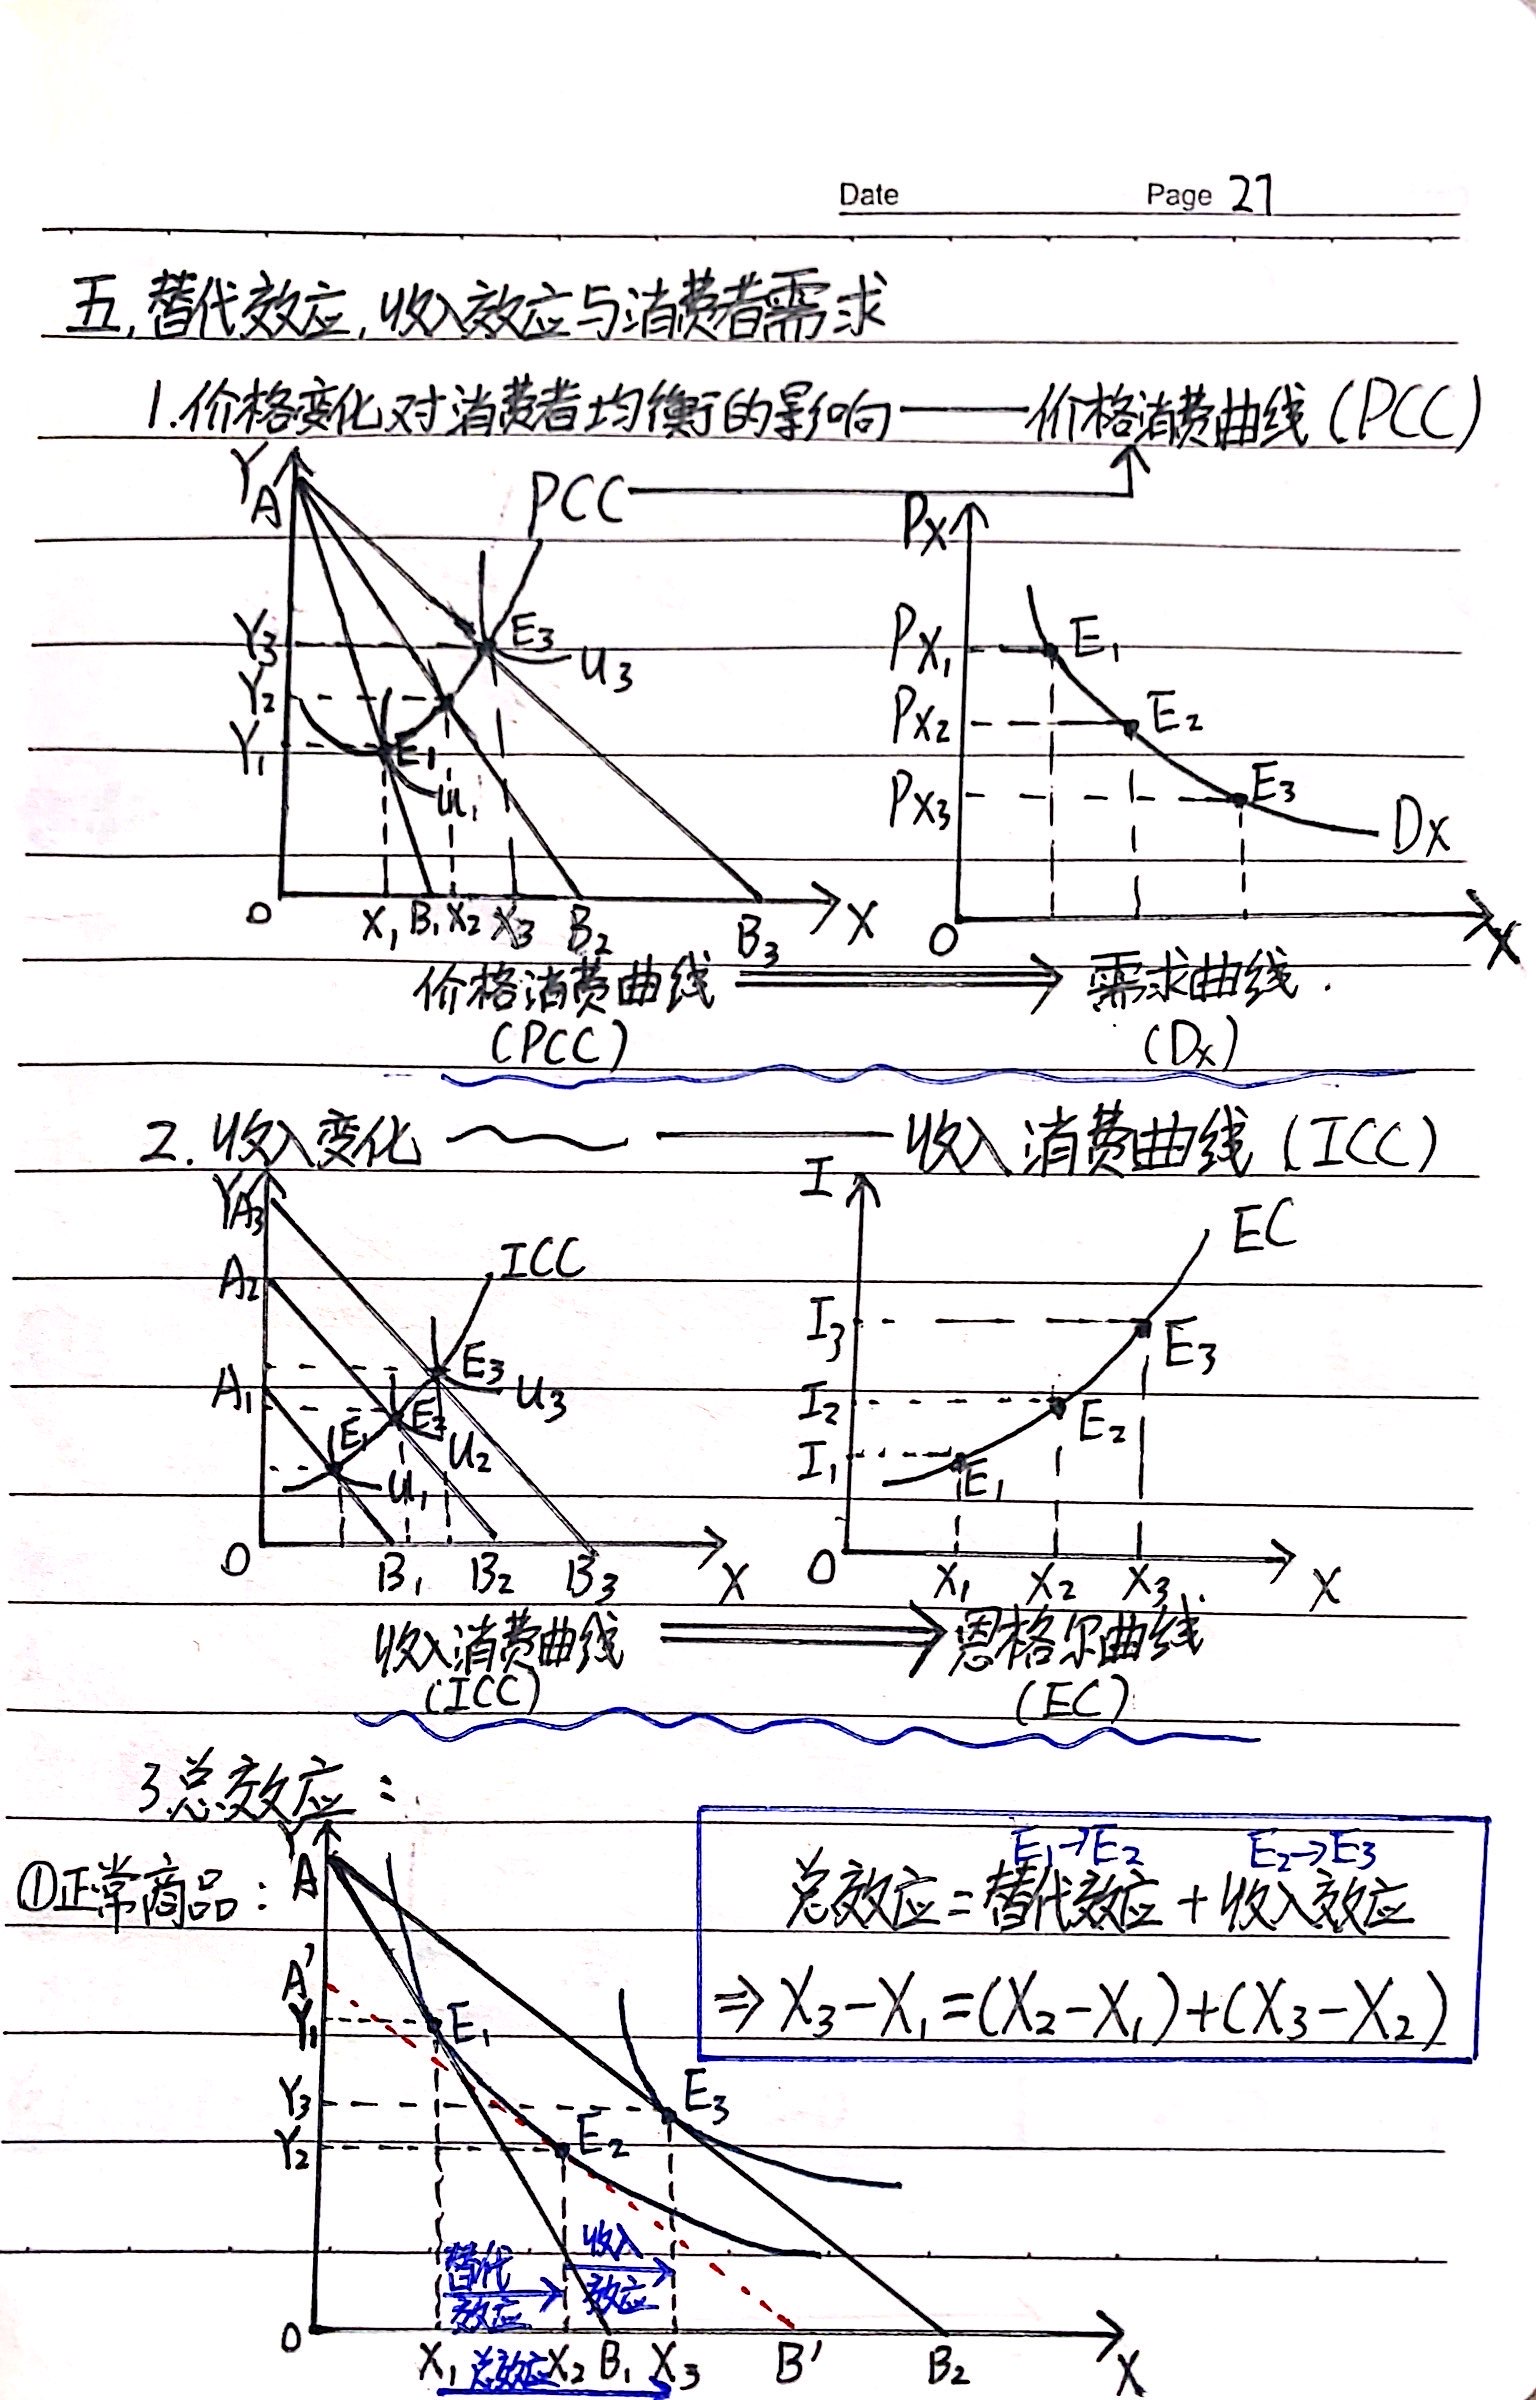 Date Page 27
五.替代效应,收入效应与消费者需求
1.价格变化对消费者均衡的影响——价格消费曲线(PCC)
Y
A
PCC
Y3
E3
U3
Y2
Y1
E1
U1
O X1 B1 X2 X3 B2 B3 X
Px
Px1 E1
Px2 E2
Px3 E3
Dx
O X
价格消费曲线 ⟹ 需求曲线.
(PCC) (Dx)
2.收入变化 —— 收入消费曲线(ICC)
Y
A3
A2
A1
ICC
E3
U3
E2
U2
E1
U1
O B1 B2 B3 X
I
EC
I3 E3
I2 E2
I1 E1
O X1 X2 X3 X
收入消费曲线 ⟹ 恩格尔曲线
(ICC) (EC)
3总效应:
①正常商品:
Y
A
A'
Y1
E1
Y3
E3
Y2
E2
替代
效应
收入
效应
O X1 总效应 X2 B1 X3 B' B2 X
E1→E2 E2→E3
总效应=替代效应+收入效应
⇒X3-X1=(X2-X1)+(X3-X2)